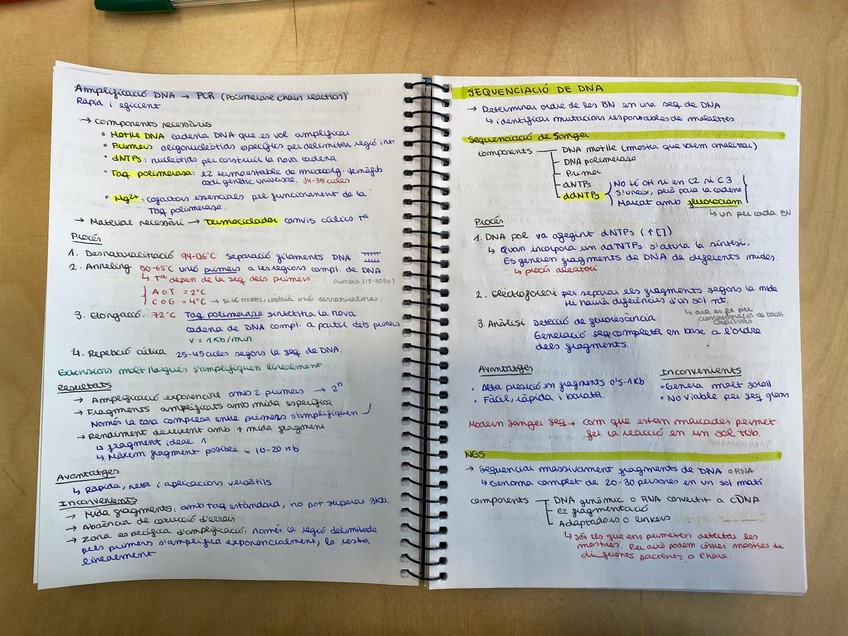 Amplificació DNA → PCR (Polimerase chain reaction)
Ràpid i eficient
→ Components necessaris
• Motlle DNA cadena DNA que es vol amplificar
• Primers oligonucleòtids específics per delimitar regió int.
• dNTPs: nucleòtids per construir la nova cadena
• Taq polimerasa: EZ termoestable de microorg.
codi genètic universal.
• Mg2+: cofactors essencials pel funcionament de la
Taq polimerasa.
→ Material necessari → Termociclador canvis cíclics Tª
Procés
1. Desnaturalització 94-96°C separació filaments DNA
2. Anneling 50-65°C unió primers a les regions compl. de DNA
↳ Tª depen de la seq dels primers
A O T = 2°C
C O G = 4°C → si
3. Elongació. 72°C Taq polimerasa sintetitza la nova
cadena de DNA compl. a partir dels primers
v = 1Kb/min
4. Repetició cíclica 25-45 cicles segons la seq de DNA.
Extensions molt llargues s'amplifiquen linealment
Resultats
→ Amplificació exponencial amb 2 primers → 2ⁿ
→ Fragments amplificats amb mida específica
Només la zona compresa entre primers s'amplifiquen
→ Rendiment decreixent amb ↑ mida fragment
↳ fragment ideal 1
↳ Màxim fragment possible = 10-20 Kb
Avantatges
↳ Ràpida, neta i aplicacions versàtils
Inconvenients
→ Mida fragments: amb taq estàndard, no pot superar 3Kb.
→ Absència de correcció d'errors
→ Zona específica d'amplificació: només la regió delimitada
pels primers s'amplifica exponencialment, la resta
linealment
SEQUENCIACIÓ DE DNA
→ Determinar ordre de les BN en una seq de DNA
↳ identificar mutacions responsables de malalties
Sequenciació de Sanger
components
DNA motlle (mostra que volem analitzar)
DNA polimerase
Primer
dNTPs
ddNTPs
No té OH ni en C2 ni C3
S'uneix, però para la cadena
Marcat amb fluorocrom
↳ un per cada BN
Procés
1. DNA pol va afegint dNTPs (↑[])
↳ Quan incorpora un ddNTPs s'atura la síntesi.
Es generen fragments de DNA de diferents mides.
↳ procés aleatori
2. Electroforesi per separar els fragments segons la mida
Hi haurà diferències d'un sol nt.
3. Anàlisi Detecció de fluorescència
↳ ara es fa per
Generació seq completa en base a l'ordre
dels fragments.
Avantatges
• Alta precisió en fragments 0'5-1Kb
• Fàcil, ràpida i barata
Inconvenients
• Genera molt soroll
• No viable per seq grans
Modern Sanger Seq → Com que estan marcades permet
fer la reacció en un sol tub
NGS
→ Sequenciar massivament fragments de DNA o RNA
↳ Genoma complet de 20-30 persones en un sol matí
components
DNA genòmic o RNA convertit a cDNA
EZ fragmentació
Adaptadors o linkers
↳ Són les que ens permeten detectar les
mostres. Per això podem córrer mostres de
diferents pacients a l'hora.